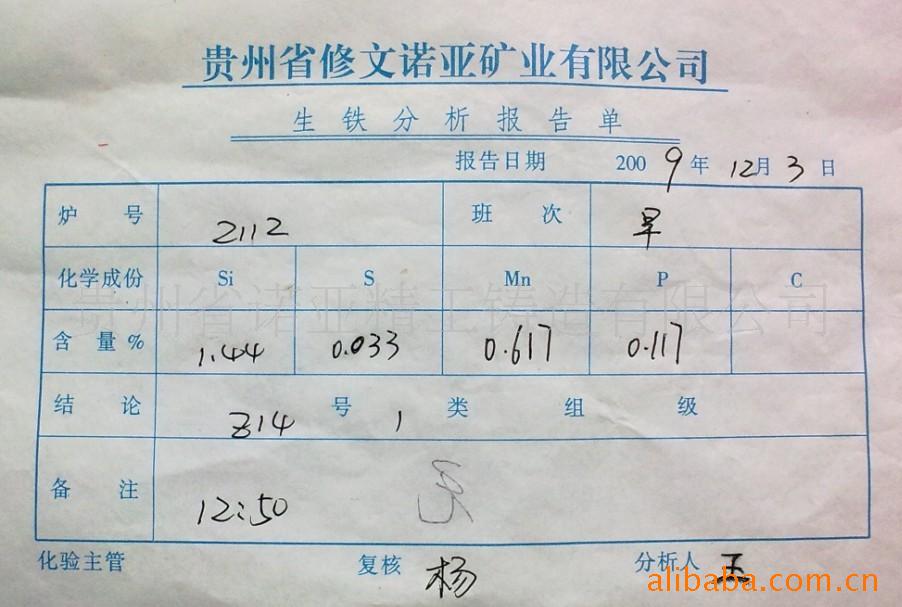 贵州省修文诺亚矿业有限公司
生铁分析报告单
报告日期 2009年12月3日
炉号 2112 班次 早
化学成份 Si S Mn P C
贵州省诺亚精工铸造有限公司
含量% 1.44 0.033 0.617 0.117
结论 Z14号 1类 组 级
备注 12:50
化验主管 复核 杨 分析人 王
alibaba.com.cn